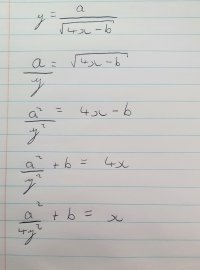 y = a/√(4x-b)
a/y = √(4x-b)
a²/y² = 4x-b
a²/y² + b = 4x
a²/4y² + b = x